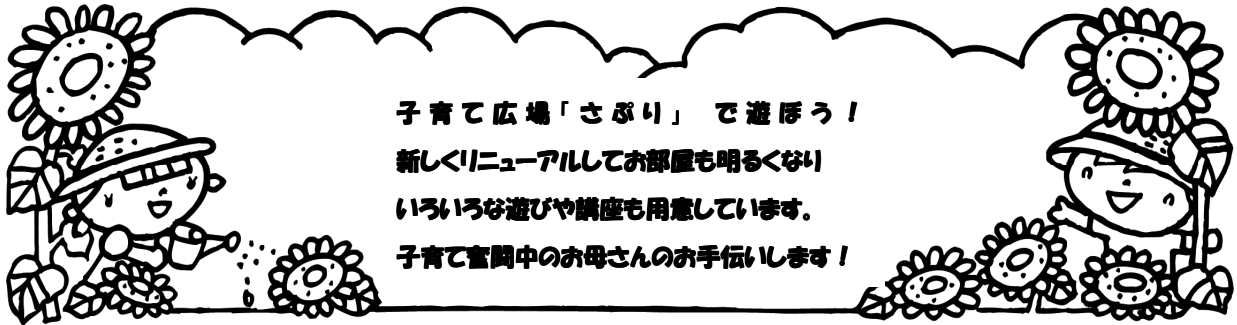 子育て広場「さぷり」 で遊ぼう!
新しくリニューアルしてお部屋も明るくなり
いろいろな遊びや講座も用意しています。
子育て奮闘中のお母さんのお手伝いします!